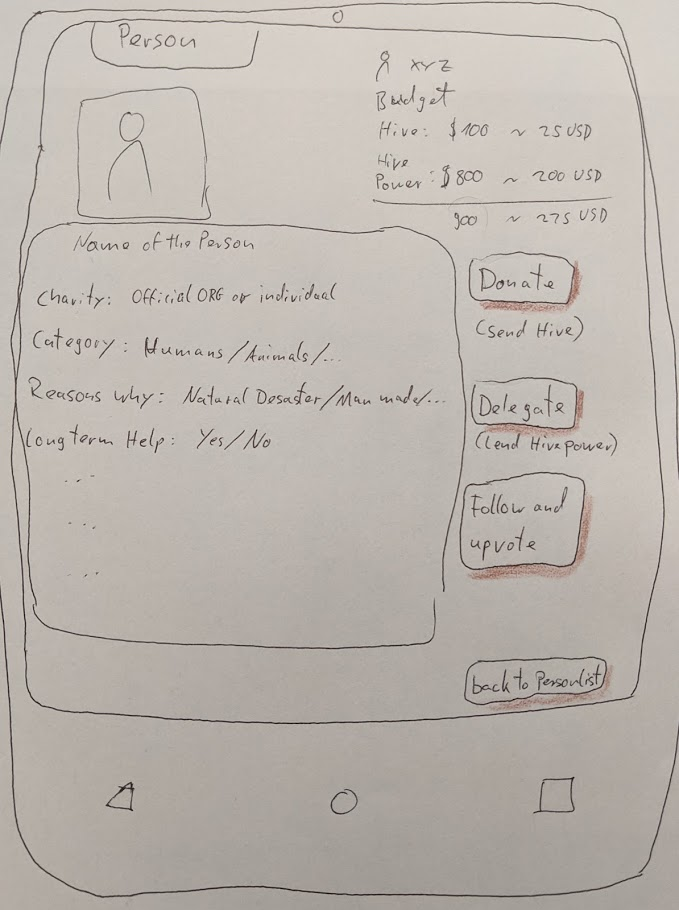 Person
xyz
Budget
Hive: $100 ~ 25 USD
Hive
Power: $800 ~ 200 USD
900 ~ 275 USD
Name of the Person
Charity: Official ORG or individual
Category: Humans/Animals/...
Reasons why: Natural Desaster/Man made/...
Longterm Help: Yes/No
...
...
...
Donate
(send Hive)
Delegate
(lend Hivepower)
Follow and
upvote
back to Personlist